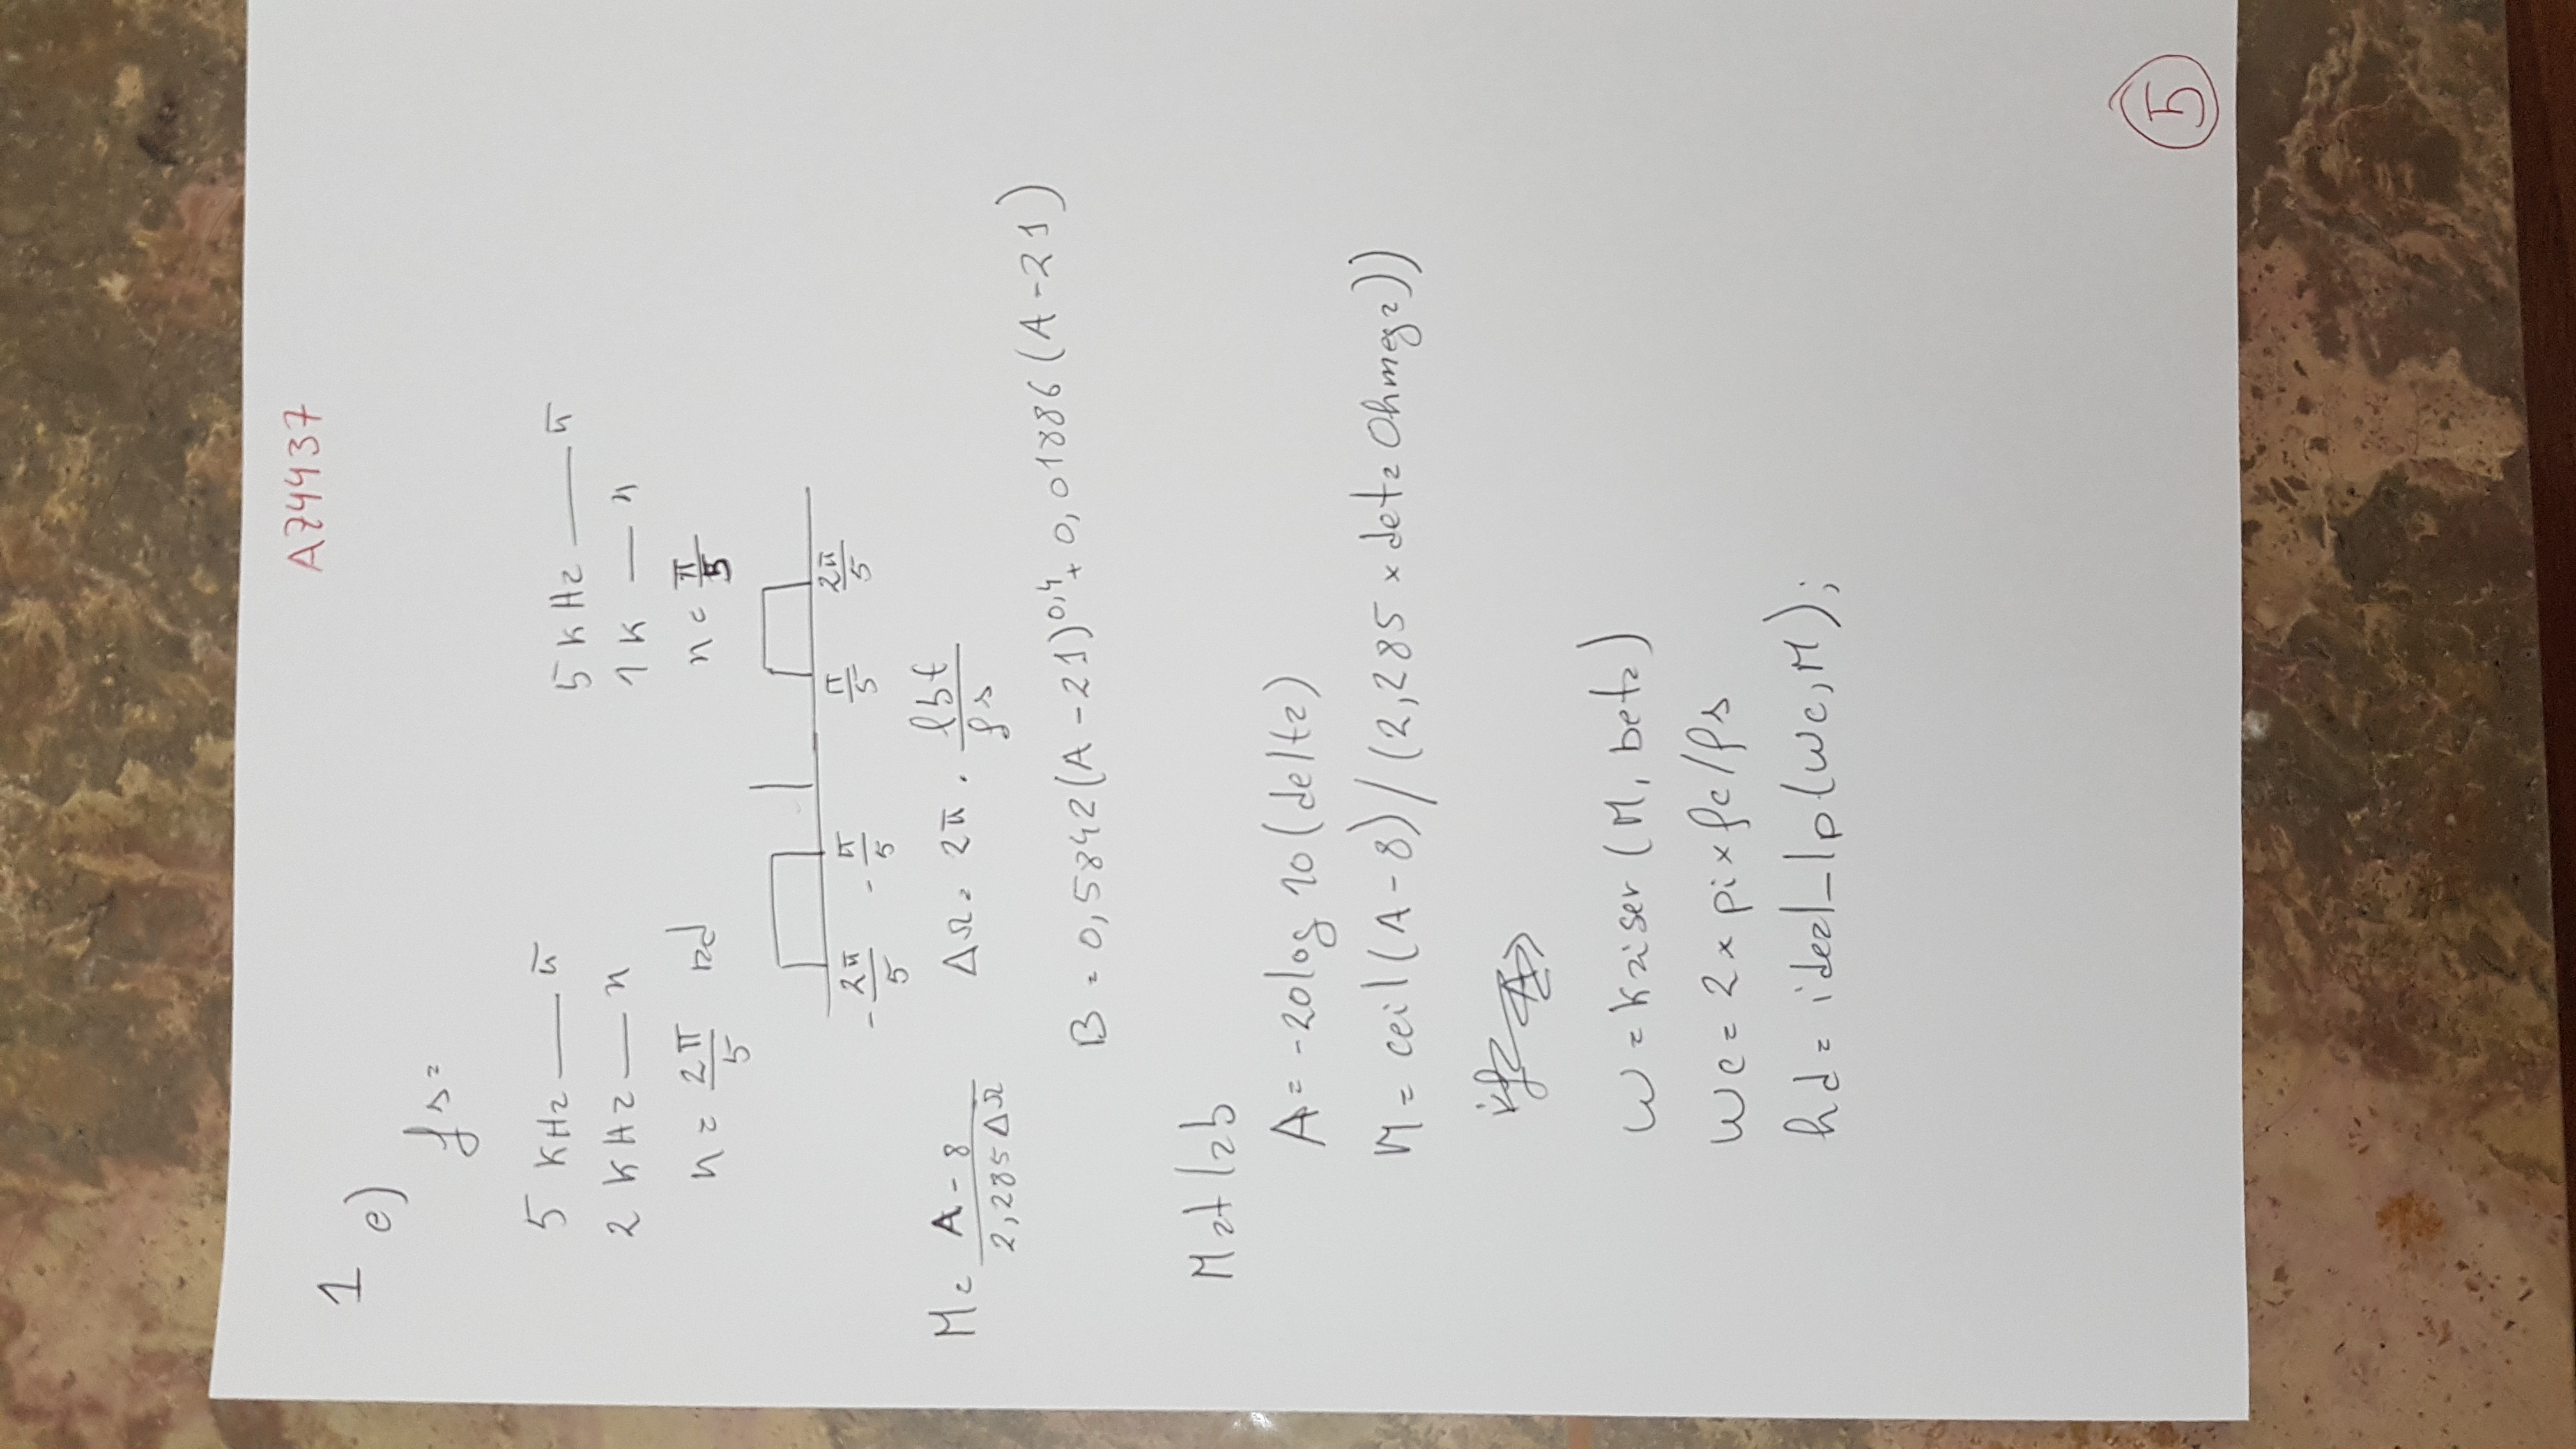 A74437
1 e)
fs=
5 KHz — π
2 KHz — x
x = 2π/5 rad
5 kHz — π
1k — x
x = π/5
-2π/5 -π/5 π/5 2π/5
M = A-8 / 2,285ΔΩ
ΔΩ = 2π . lbt/fs
B = 0,5842(A-21)^0,4 + 0,01886(A-21)
Matlab
A = -20log 10(delta)
M = ceil(A-8)/(2,285 x deta Ohmega))
w = Kaiser(M, beta)
wc = 2 x pi x fc/fs
hd = ideal_lp(wc, M);
5